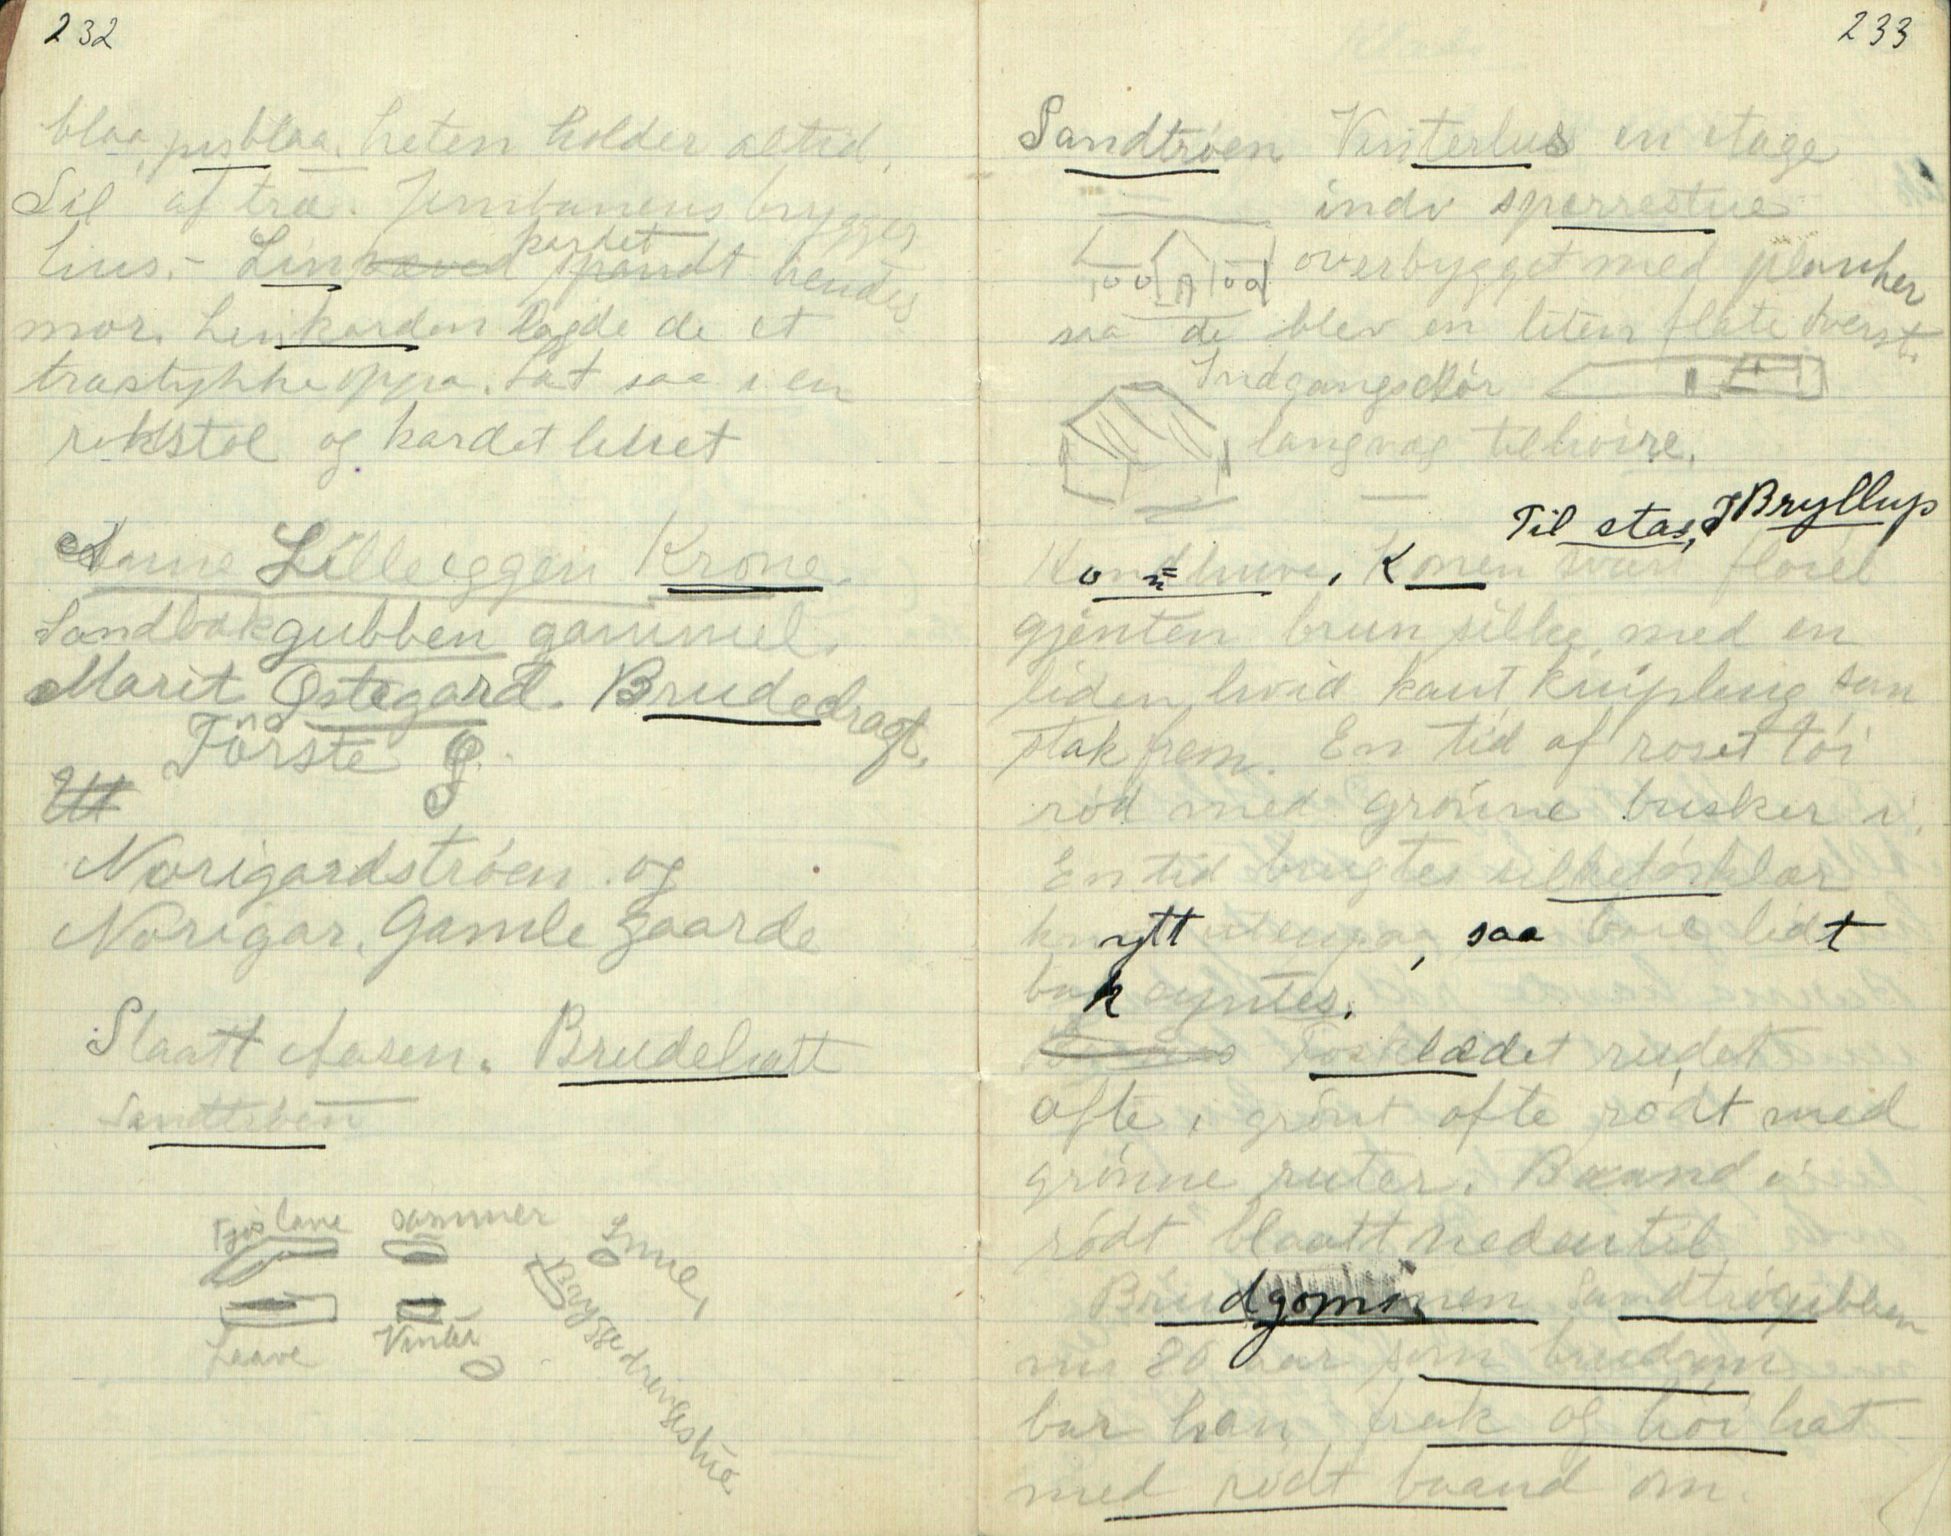 232
blaa, pisblaa. heten holder altid.
Sil af træ. Jernbanens brygger
hus. - Lin kardet spandt hendes
mor. Linkarden lagde de et
træstykke oppa. Sat saa i en
rokstol og kardet linet
Anne Lilleeggen Krone.
Sandbakgubben gammel.
Marit Østegard. Brudedragt.
Förste
Norigardströen og
Norigar. Gamle gaarde
Slaatt Maren. Brudehatt
Sandtröen
Fjøs lave sommer Smie,
Laave Vinter Brygge drengestue
233
Sandtröen Vinterhus en etage
indv sperrestue
overbygget med planker
saa de blev en liten flate överst.
Indgangsdör
langvæg tilhöire.
Til stas, I Bryllup
Konehuve, Konen svart floiel
gjenten brun silke, med en
liden hvid kant knipling som
stak frem. En tid af roset töi
röd med grönne busker i.
En tid brugtes silketörklær
knytt utenpaa, saa lidt
bak syntes.
Törklædet rudet
ofte i grönt ofte rödt med
grönne ruter. Baand i
rödt blaatt nedentil
Brudgommen Sandtrögubben
nu 86 aar som brudgom
bar han frak og höi hat
med rödt baand om.